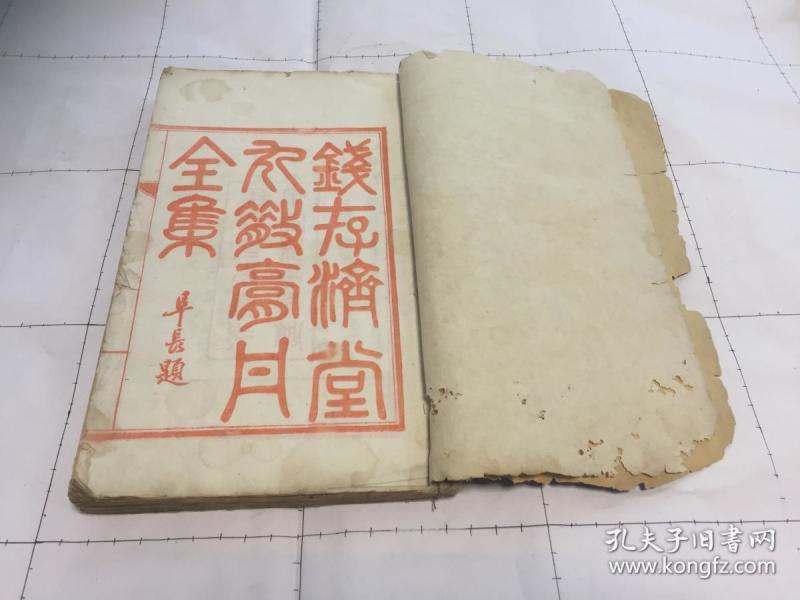 錢存濟堂
丸散膏丹
全集
阜長題
孔夫子旧书网
www.kongfz.com